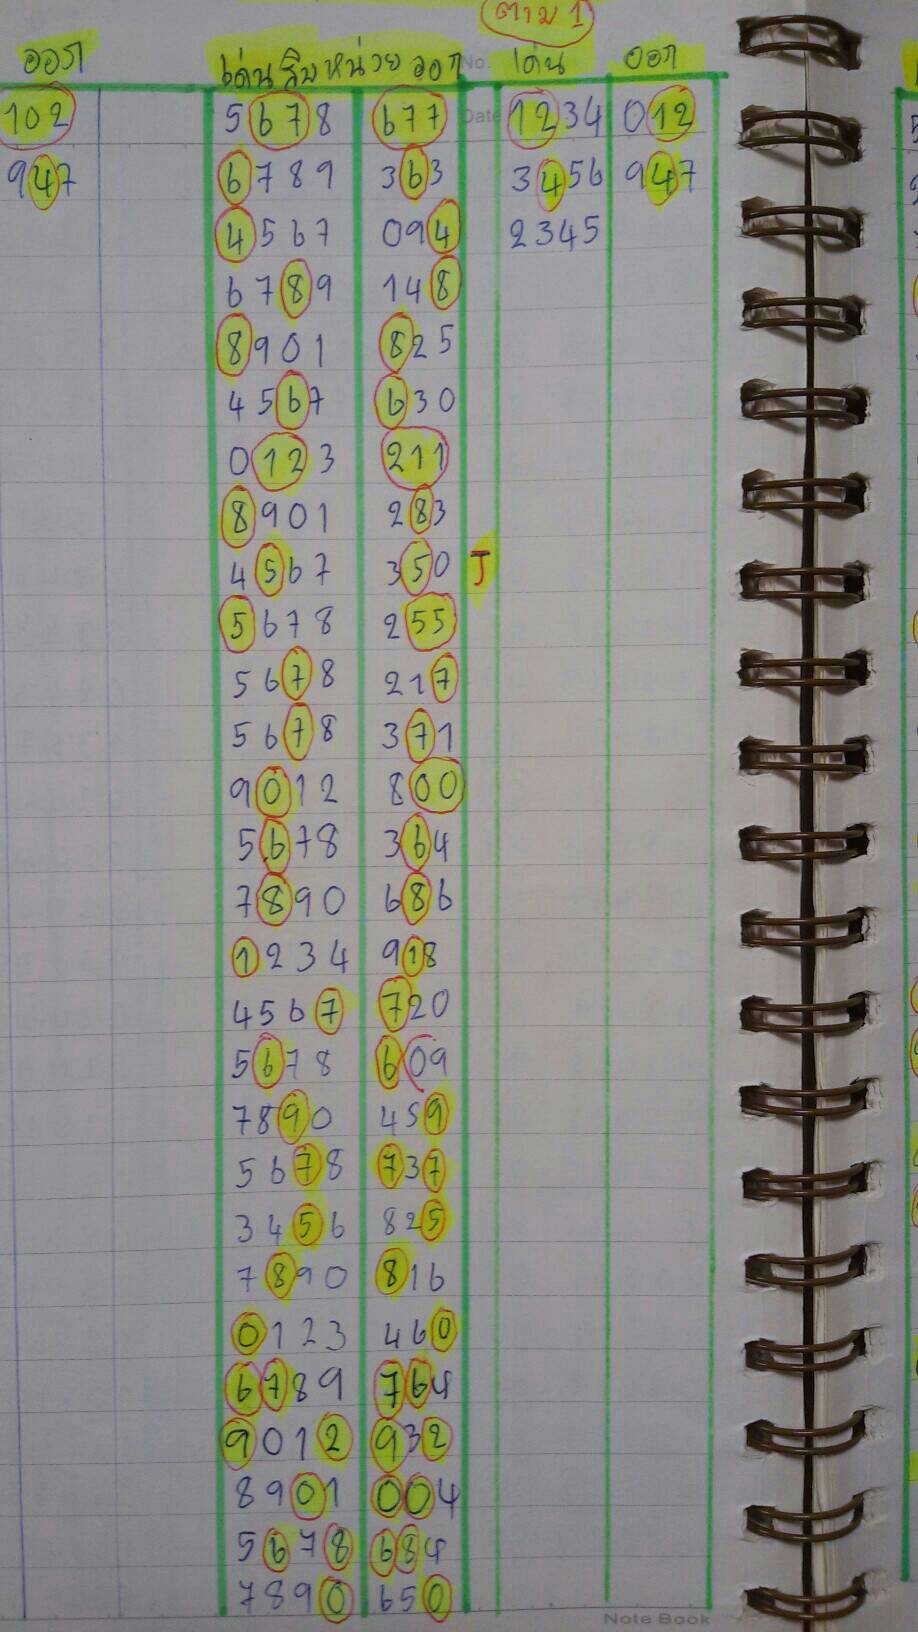 ตาม 1
ออก เด่นสิบหน่วย ออก No. เด่น ออก
102 5678 677 Date 1234 012
947 6789 363 3456 947
4567 094 2345
6789 148
8901 825
4567 630
0123 211
8901 283
4567 350 J
5678 255
5678 217
5678 371
9012 800
5678 364
7890 686
1234 918
4567 720
5678 609
7890 459
5678 737
3456 825
7890 816
0123 460
6789 764
9012 932
8901 004
5678 684
7890 650
Note Book